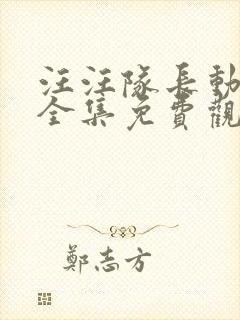 汪汪隊長動
全集免費觀
鄭志方